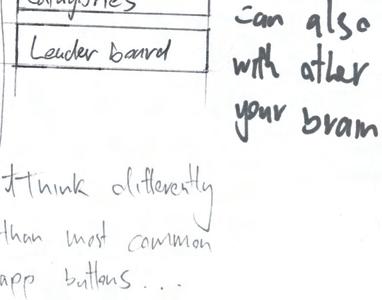 Categories
Leader board
can also
with other
your brain
Think differently
than most common
app buttons...